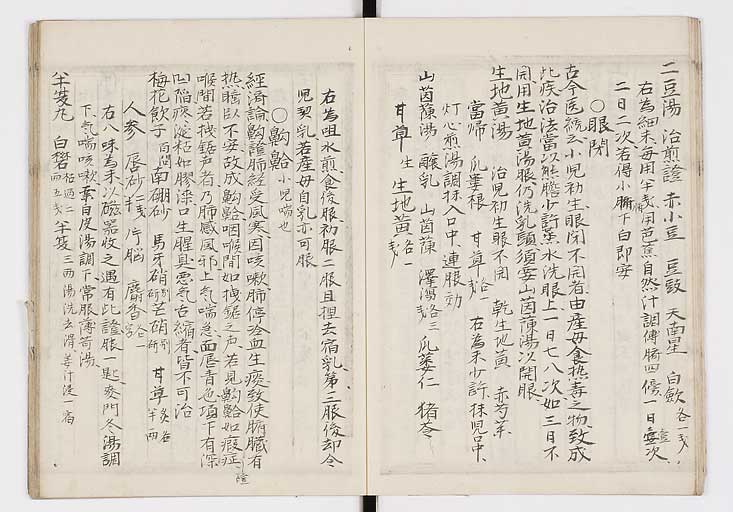 二豆湯 治煎證 赤小豆 豆豉 天南星 白斂各一戔
右為細末每用半戔用芭蕉自然汁調傅臍四傍一日壹次
二日二次若得小腑下白即安
○眼閉
古今医統云小児初生眼閉不開者由産母食熱毒之物致成
此疾治法當以熊膽少許蒸水洗眼上一日七八次如三日不
開用生地黄湯服仍洗乳頭須安山茵蔯湯以開眼
生地黄湯 治児初生眼不開 乾生地黄 赤芍薬
當帰 瓜蔞根 甘草各一戔 右為末少許抹児口中
灯心煎湯調抹入口中連服効
山茵蔯湯 釀乳 山茵蔯 澤瀉各三戔 瓜蔞仁 猪苓
甘草生 生地黄各一戔
右為咀水煎食後服初服二服且捏去宿乳第三服後却令
児喫乳若産母自乳亦可服
○齁䶎小児喘也
經済論齁證肺經受風寒因咳嗽肺停冷血生痰致使腑臓有
熱睡臥不安故成齁䶎咽喉間如拽鋸之声若見齁䶎如瘕症
喉間若拽鋸声者乃肺感風邪上气喘急面唇青色項下有深
凹陥痰涎粘如膠深口生腥臭悪气舌縮者皆不可治
梅花飲子 百問 南硼砂 馬牙硝別研 芒硝別研 甘草炙各半両
人参 辰砂半戔 片脳 麝香各一字
右八味為末以磁器收之遇有此證服一匙麥門冬湯調
下气喘咳嗽桒白皮湯調下常服薄荷湯
半夏丸 白礬枯過二両五戔 半夏三両湯洗去滑姜汁浸一宿